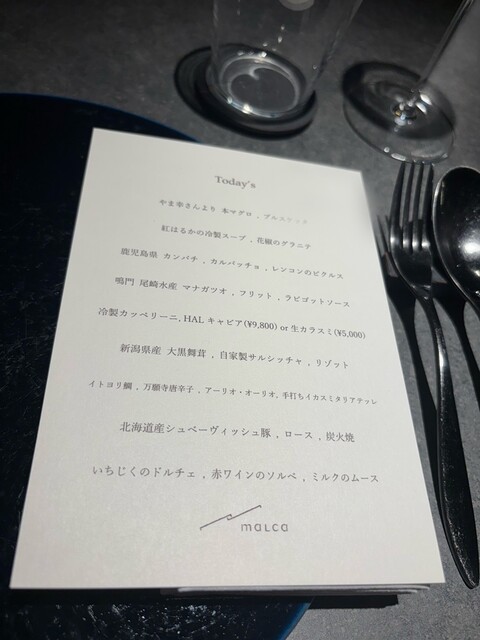 Today's
やま幸さんより 本マグロ , ブルスケッタ
紅はるかの冷製スープ , 花椒のグラニテ
鹿児島県 カンパチ , カルパッチョ , レンコンのピクルス
鳴門 尾崎水産 マナガツオ , フリット , ラビゴットソース
冷製カッペリーニ, HAL キャビア(¥9,800) or 生カラスミ(¥5,000)
新潟県産 大黒舞茸 , 自家製サルシッチャ , リゾット
イトヨリ鯛 , 万願寺唐辛子 , アーリオ・オーリオ, 手打ちイカスミタリアテッレ
北海道産シュベーヴィッシュ豚 , ロース , 炭火焼
いちじくのドルチェ , 赤ワインのソルベ , ミルクのムース
maLca